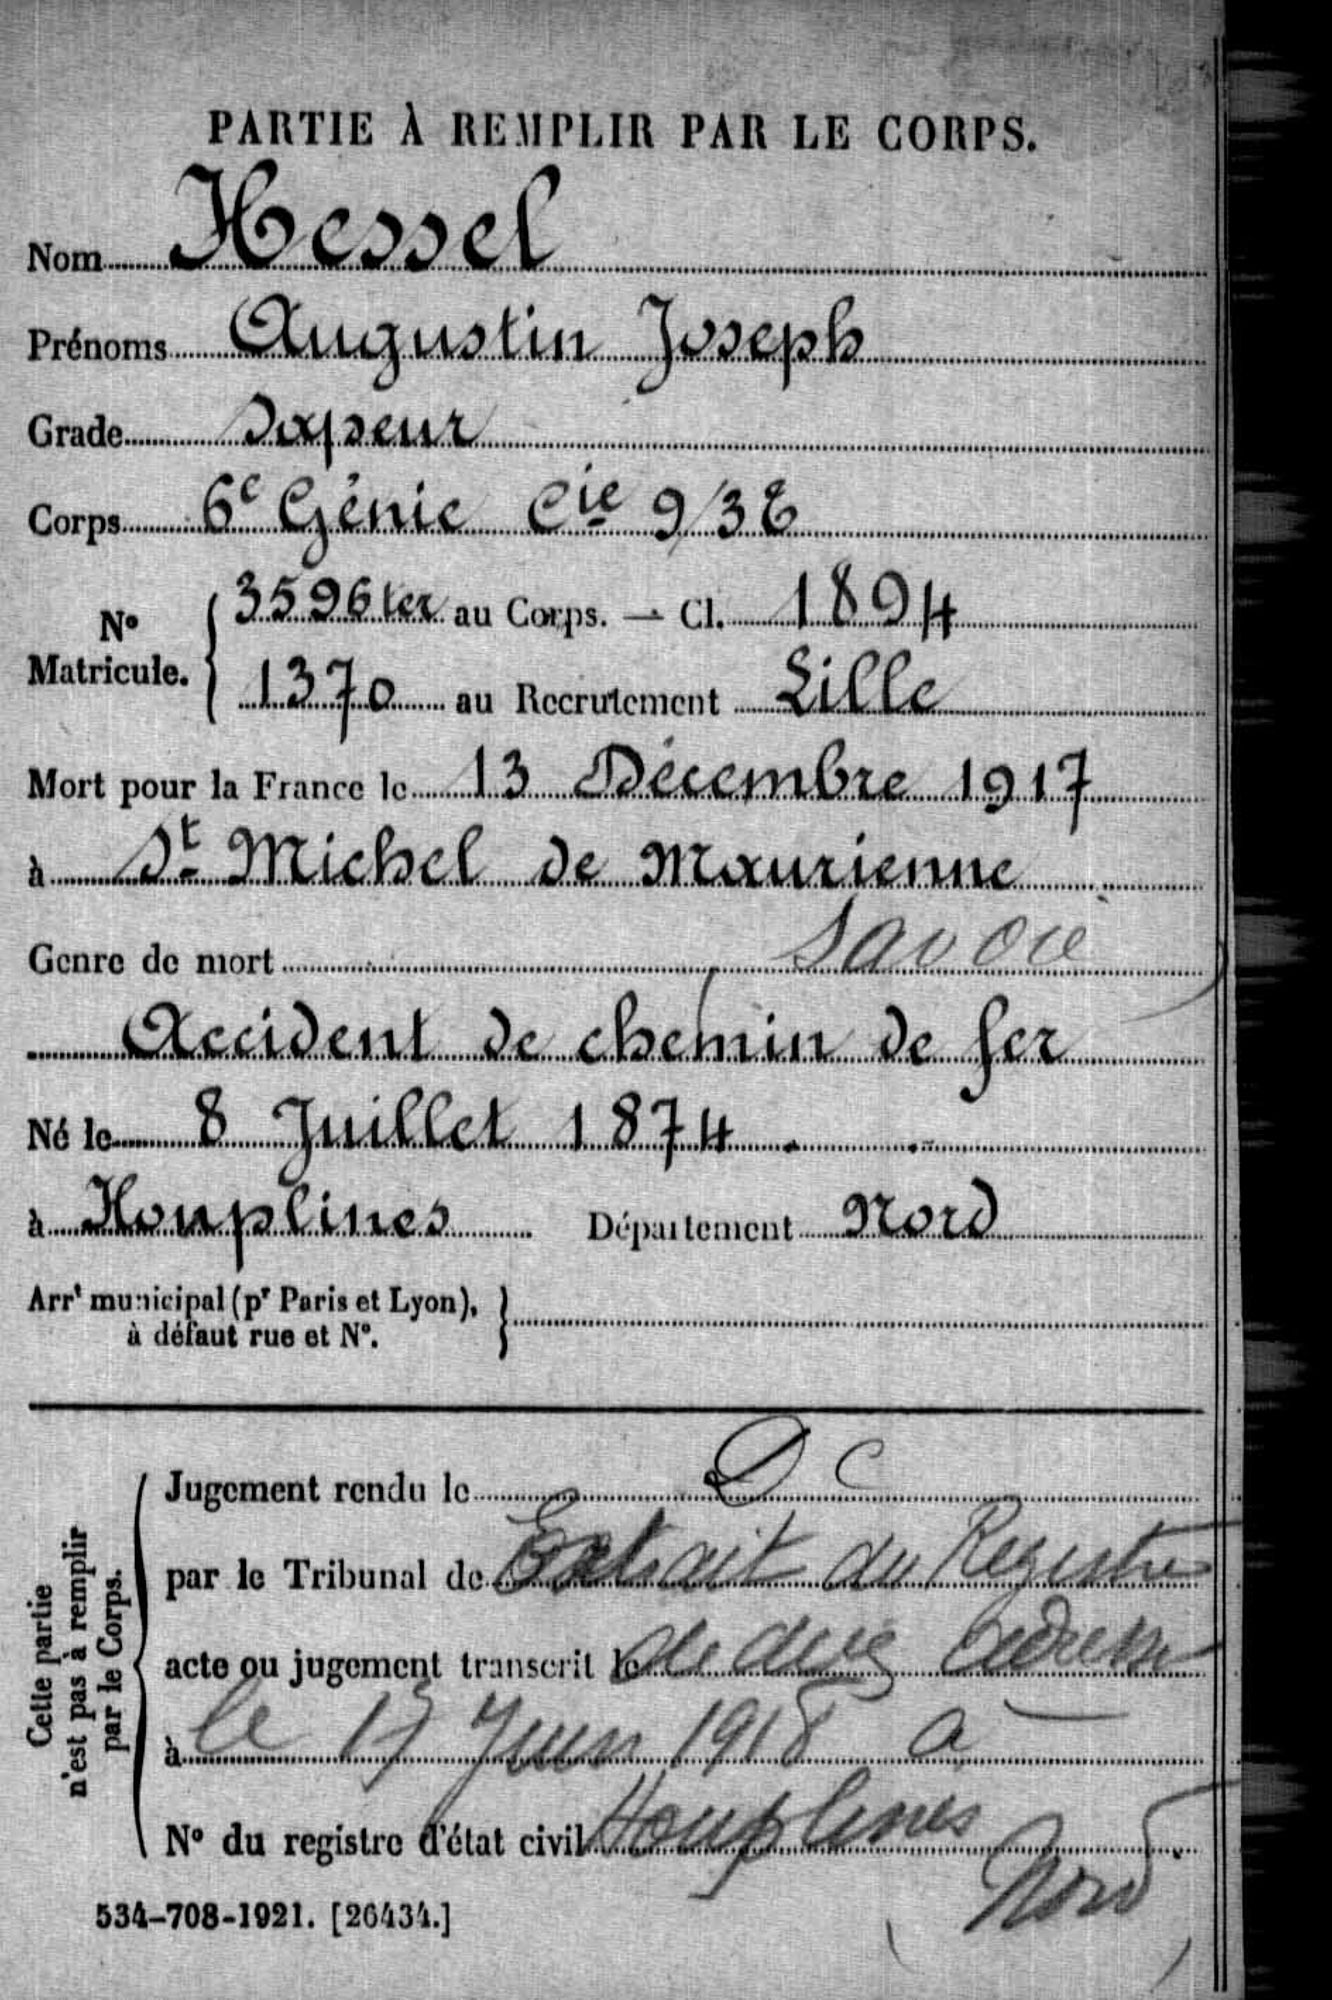 PARTIE À REMPLIR PAR LE CORPS.
Nom Hessel
Prénoms Augustin Joseph
Grade Sapeur
Corps 6e Génie Cie 9/3E
No Matricule. { 3596 ter au Corps. — Cl. 1894
1370 au Recrutement Lille
Mort pour la France le 13 Décembre 1917
à St Michel de Maurienne
Genre de mort Savoie
Accident de chemin de fer
Né le 8 Juillet 1874
à Houplines Département Nord
Arrt municipal (pr Paris et Lyon), }
à défaut rue et No.
Cette partie
n'est pas à remplir
par le Corps.
Jugement rendu le D C
par le Tribunal de Extrait du Registre
acte ou jugement transcrit le de décès adressé
à le Juin 1918 à
No du registre d'état civil Houplines
Nord
534-708-1921. [26434.]